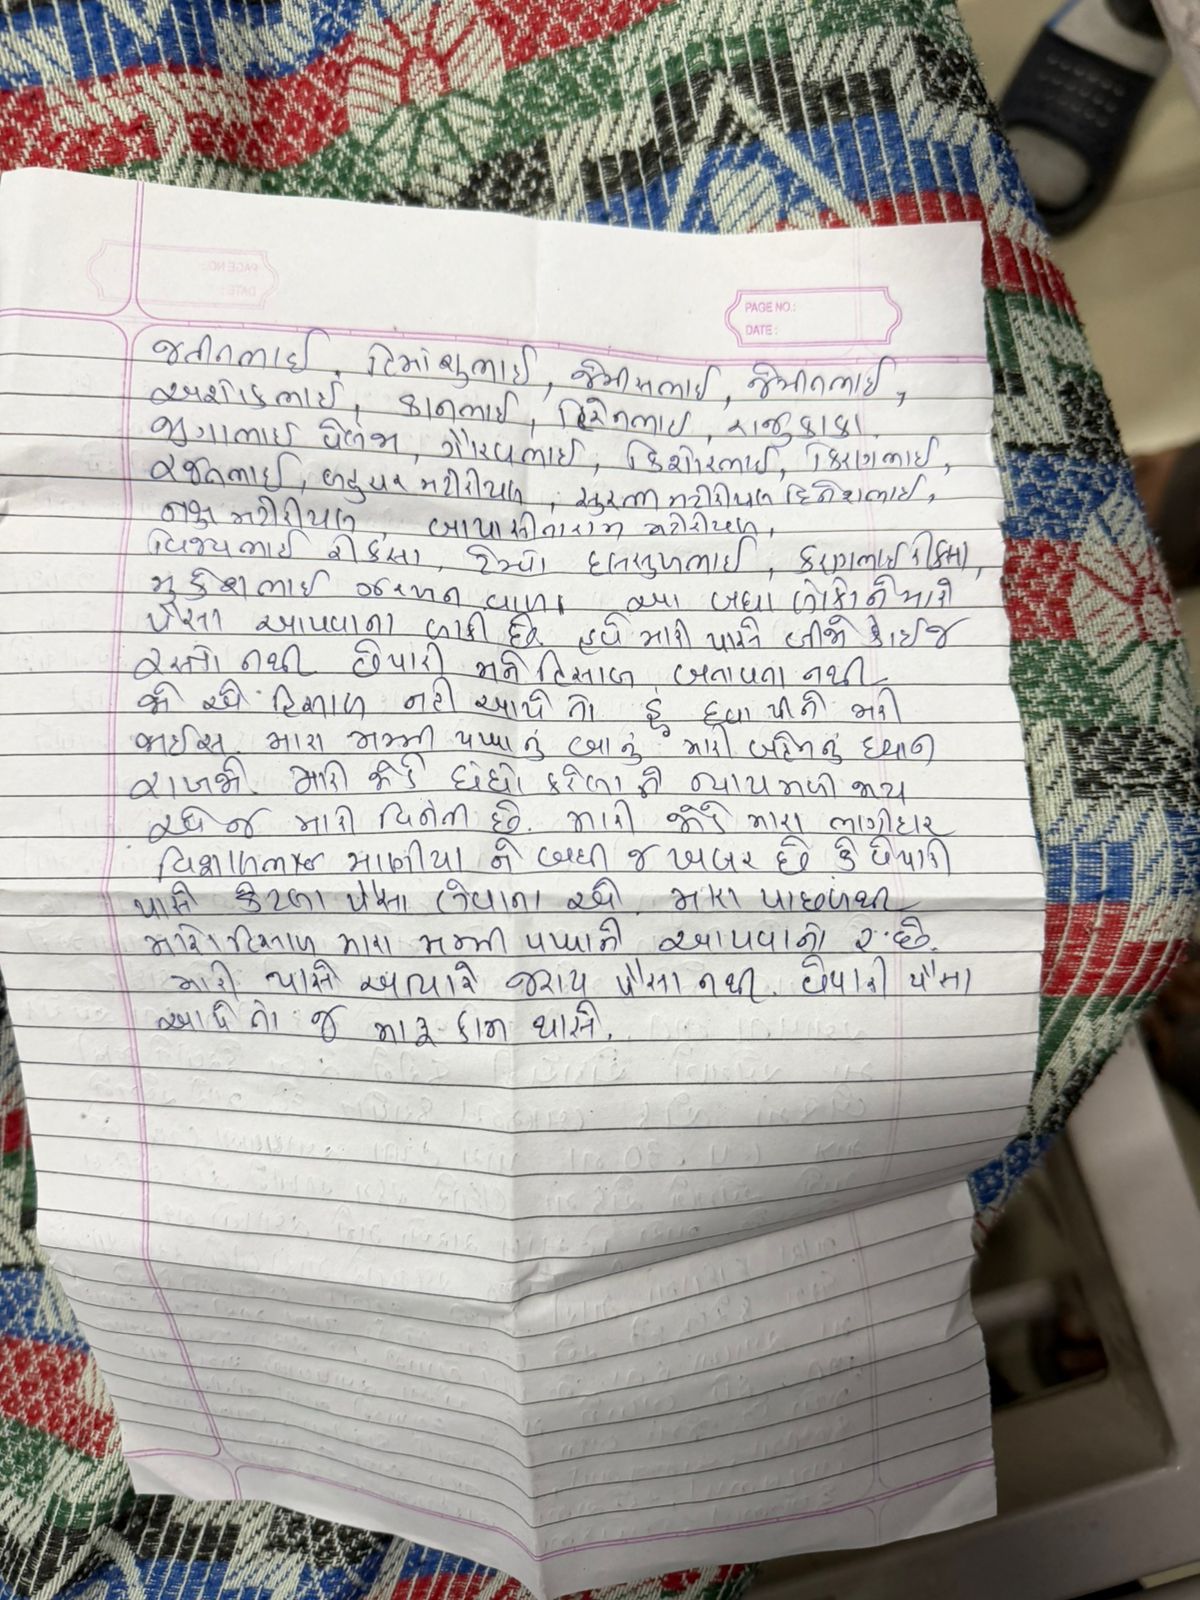 PAGE NO.:
DATE :
જતીનભાઈ, હિમાંશુભાઈ, જેમીસભાઈ, જૈમીનભાઈ,
અશોકભાઈ, કાનભાઈ, હિરેનભાઈ, રાજુકાકા
જીગાભાઈ વેલંજા, ગૌરવભાઈ, કિશોરભાઈ, કિરણભાઈ,
રજતભાઈ, મટીરીયલ, સુરભી મટીરીયલ દિનેશભાઈ,
મટીરીયલ, બાપાસીતારામ મટીરીયલ,
વિજયભાઈ રીક્સા, દલસુખભાઈ, કરણભાઈ રીક્સા,
મુકેશભાઈ વાળા આ બધા લોકોને મારે
પૈસા આપવાના બાકી છે. હવે મારી પાસે બીજો કોઈજ
રસ્તો નથી વેપારી મને હિસાબ બતાવતા નથી
જો એ હિસાબ નહી આપે તો હું દવા પીને મરી
જાઈસ. મારા મમ્મી પપ્પાનું બા નું મારી બહેનનું ધ્યાન
રાખજો. મારી જોડે ધંધો કરેલાને ન્યાય મળી જાય
એ જ મારી વિનંતી છે. મારી જોડે મારા ભાગીદાર
વિશાળભાઈ માણીયા ને બધી જ ખબર છે કે વેપારી
પાસે કેટલા પૈસા લેવાના છે. મારા પાછળથી
હિસાબ મારા મમ્મી પપ્પાને આપવાનો રહેશે.
મારી પાસે અત્યારે જરાય પૈસા નથી. વેપારી પૈસા
આપે તો જ મારૂ કામ થાસે.